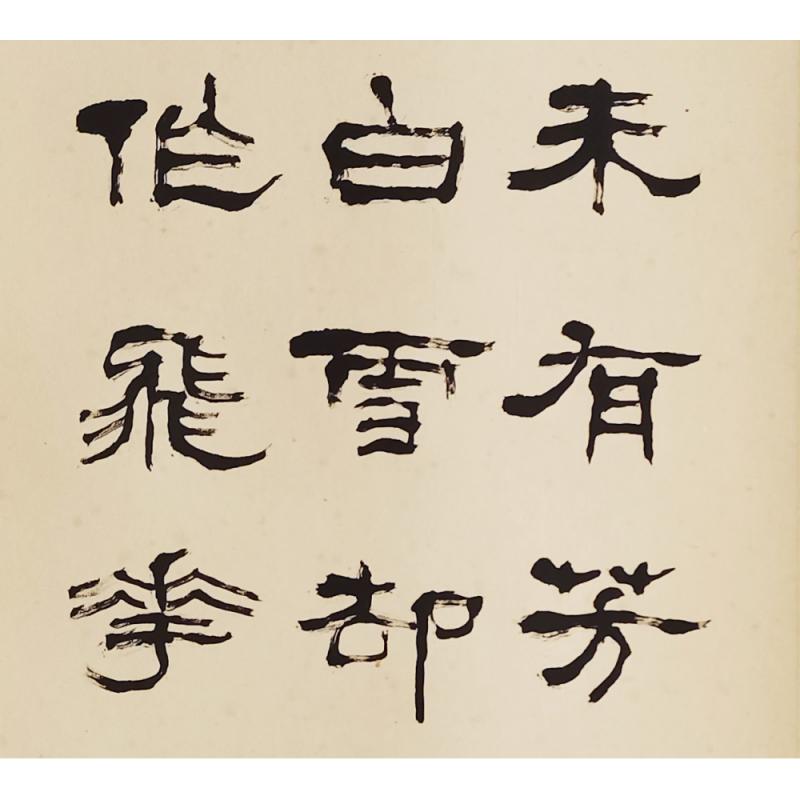 未有芳
白雪却
作飛華